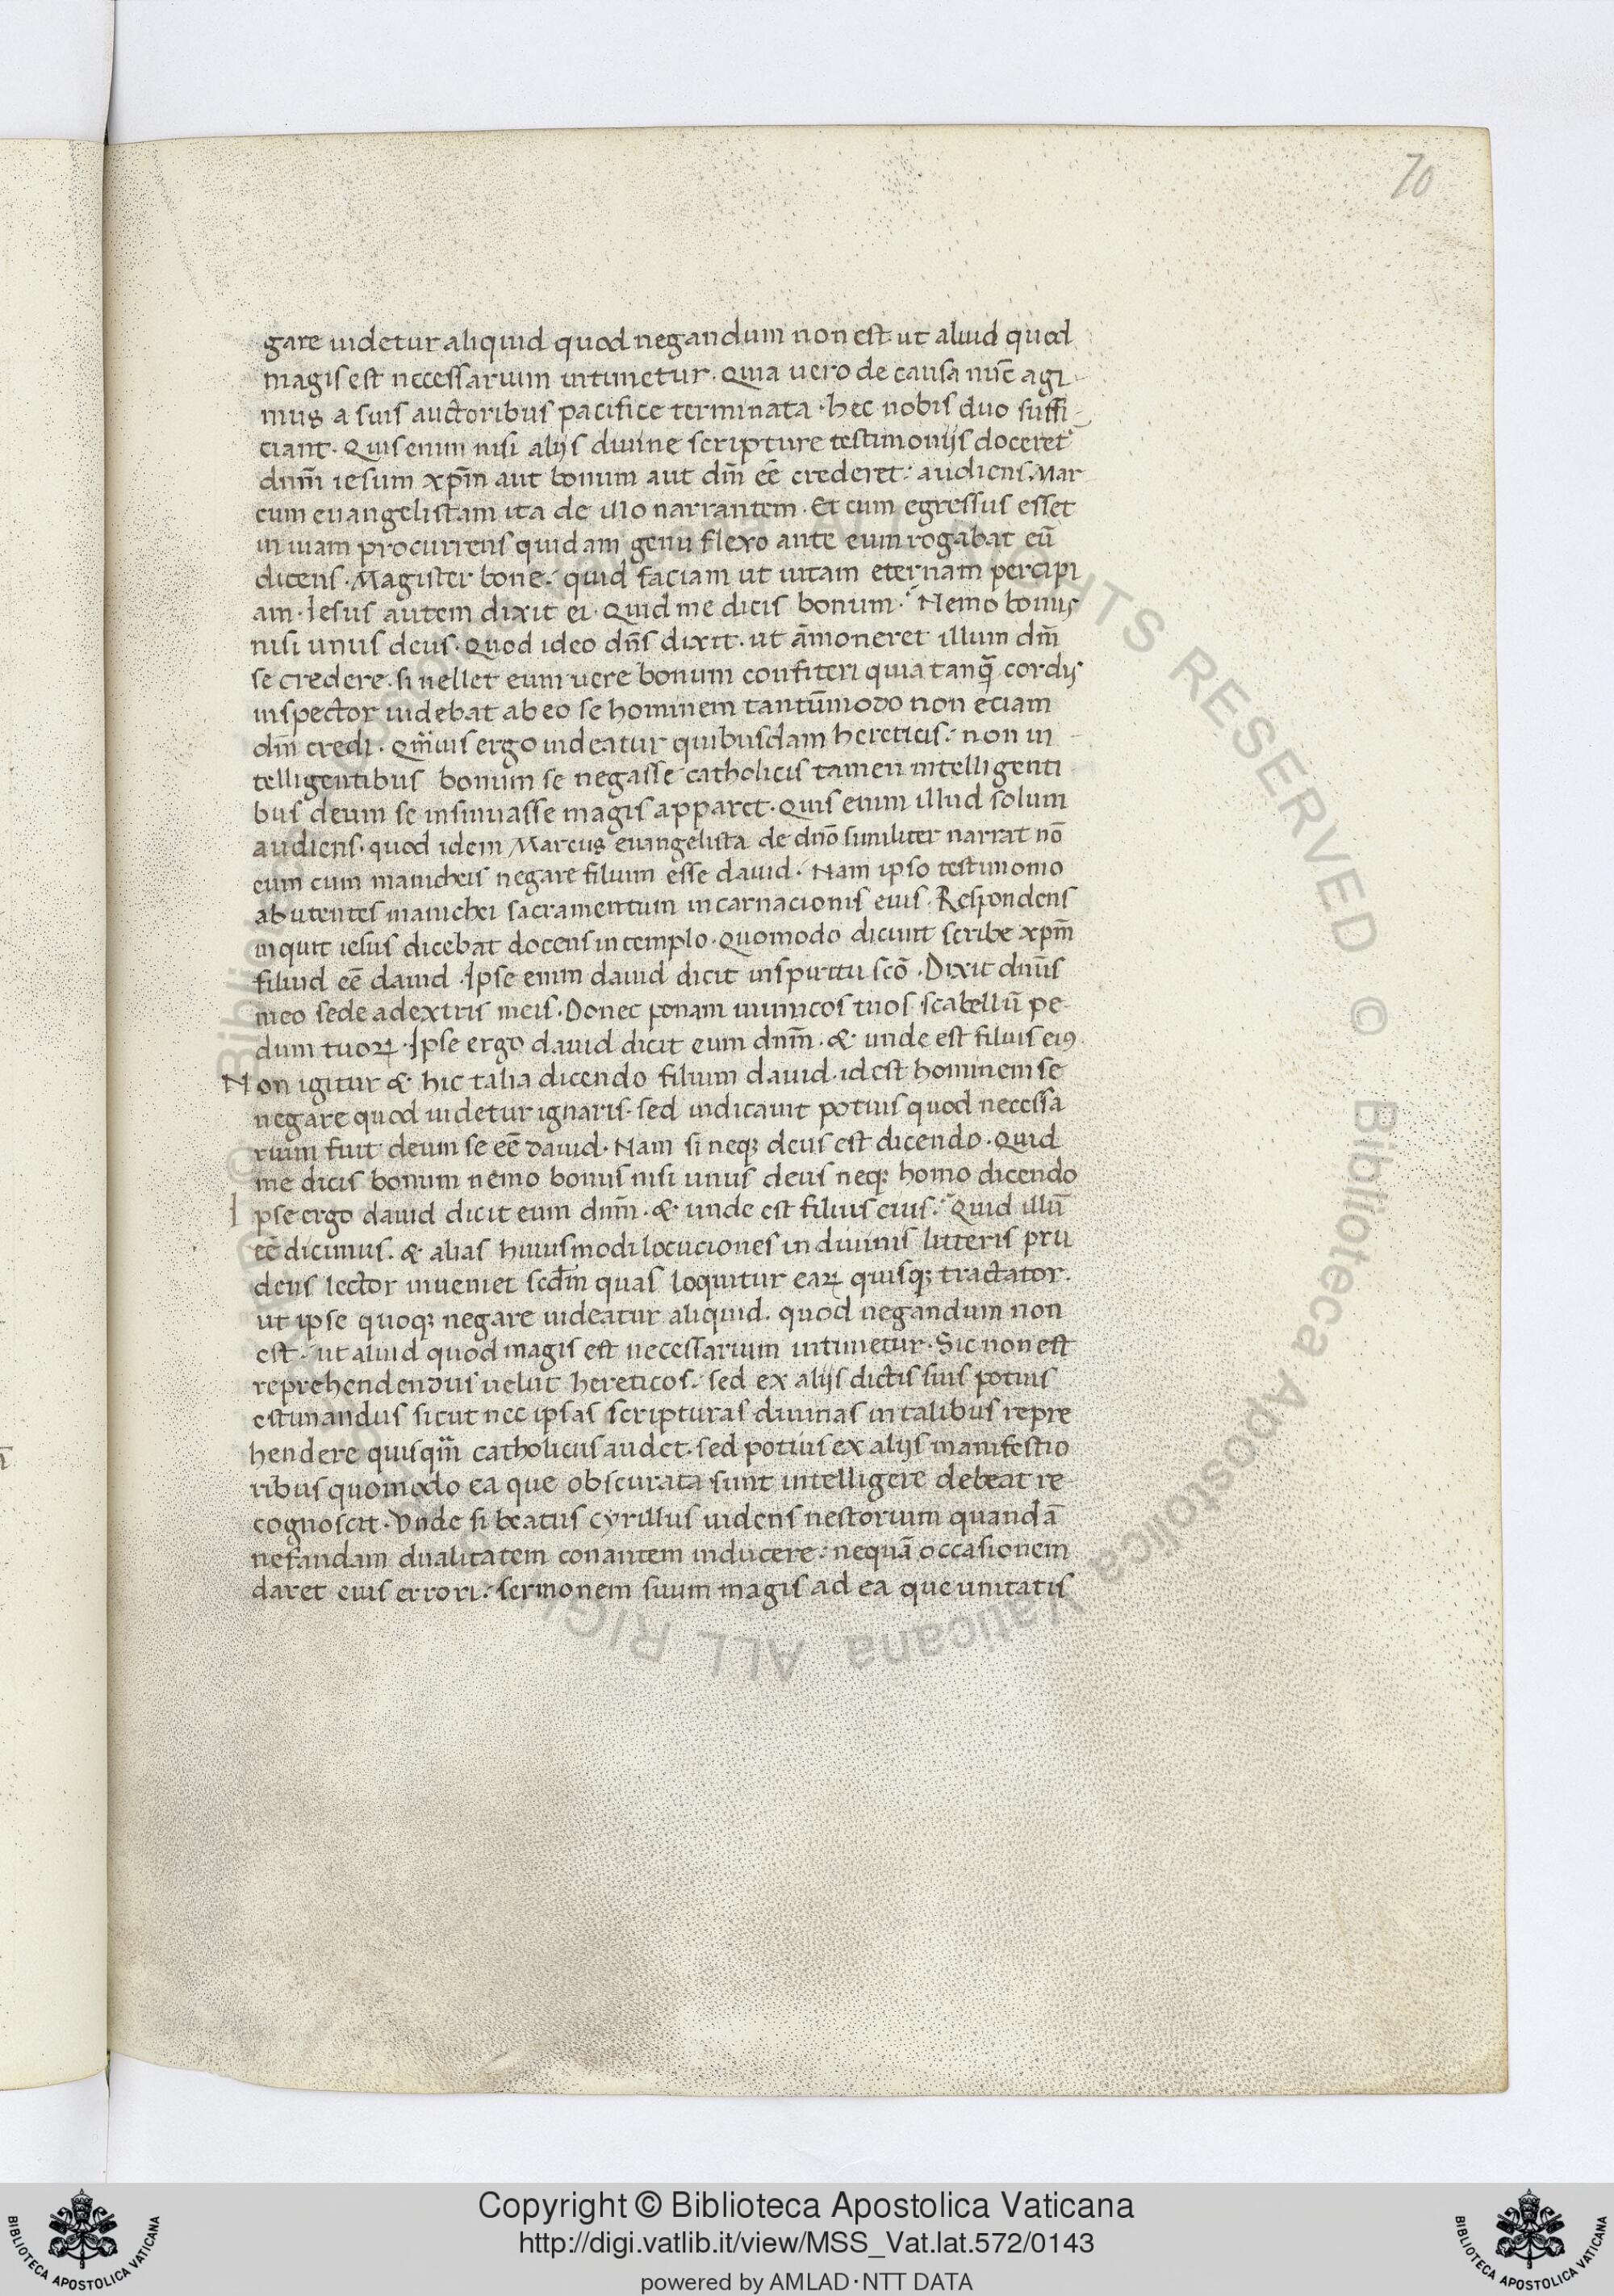 70
gare uidetur aliquid quod negandum non est ut aliud quod
magis est necessarium intimetur. Quia uero de causa nūc agi
mus a suis auctoribus pacifice terminata. hec nobis duo suffi-
ciant. Quis enim nisi alijs diuine scripture testimonijs doceret᷑
dnm̄ iesum xpm̄ aut bonum aut dm̄ eē crederet: audiens Mar
cum euangelistam ita de illo narrantem. Et cum egressus esset
in uiam procurrens quidam genu flexo ante eum rogabat eū
dicens. Magister bone: quid faciam ut uitam eternam percipi
am. Iesus autem dixit ei. Quid me dicis bonum: Nemo bonus
nisi unus deus. Quod ideo dn̄s dixit. ut āmoneret illum dm̄
se credere. si uellet eum uere bonum confiteri quia tanq̄ cordis
inspector uidebat ab eo se hominem tantūmodo non etiam
dm̄ credi. Qm̄uis ergo uideatur quibusdam hereticis: non in-
telligentibus bonum se negasse catholicis tamen intelligenti
bus deum se insinuasse magis apparet. Quis enim illud solum
audiens. quod idem Marcus euangelista de dn̄o similiter narrat nō
eum cum manicheis negare filium esse dauid. Nam ipso testimonio
abutentes manichei sacramentum incarnacionis eius. Respondens
inquit iesus dicebat docens in templo. Quomodo dicunt scribe xpm̄
filiud eē dauid. Ipse enim dauid dicit inspiritu scō. Dixit dnūs
meo sede adextris meis. Donec ponam inimicos tuos scabellū pe-
dum tuoꝝ. Ipse ergo dauid dicit eum dnm̄. & unde est filius eiꝰ
Non igitur & hic talia dicendo filium dauid. idest hominem se
negare quod uidetur ignaris. sed indicauit potius quod necessa
rium fuit deum se eē dauid. Nam si neq; deus est dicendo. Quid
me dicis bonum nemo bonus nisi unus deus neq; homo dicendo
Ipse ergo dauid dicit eum dnm̄. & unde est filius eius: Quid illū
eē dicimus. & alias huiusmodi locuciones in diuinis litteris pru
dens lector inueniet scdm̄ quas loquitur eaꝝ quisq; tractator.
ut ipse quoq; negare uideatur aliquid. quod negandum non
est. ut aliud quod magis est necessarium intimetur. Sic non est
reprehendendus uelut hereticos: sed ex alijs dictis suis potius
estimandus sicut nec ipsas scripturas diuinas in talibus repre
hendere quisqm̄ catholicus audet. sed potius ex alijs manifestio
ribus quomodo ea que obscurata sunt intelligere debeat re
cognoscit. Vnde si beatus cyrillus uidens nestorium quandā
nefandam dualitatem conantem inducere: nequā occasionem
daret eius errori: sermonem suum magis ad ea que unitatis
© Biblioteca Apostolica Vaticana ALL RIGHTS RESERVED
Copyright © Biblioteca Apostolica Vaticana
http://digi.vatlib.it/view/MSS_Vat.lat.572/0143
powered by AMLAD·NTT DATA
BIBLIOTECA APOSTOLICA VATICANA
BIBLIOTECA APOSTOLICA VATICANA